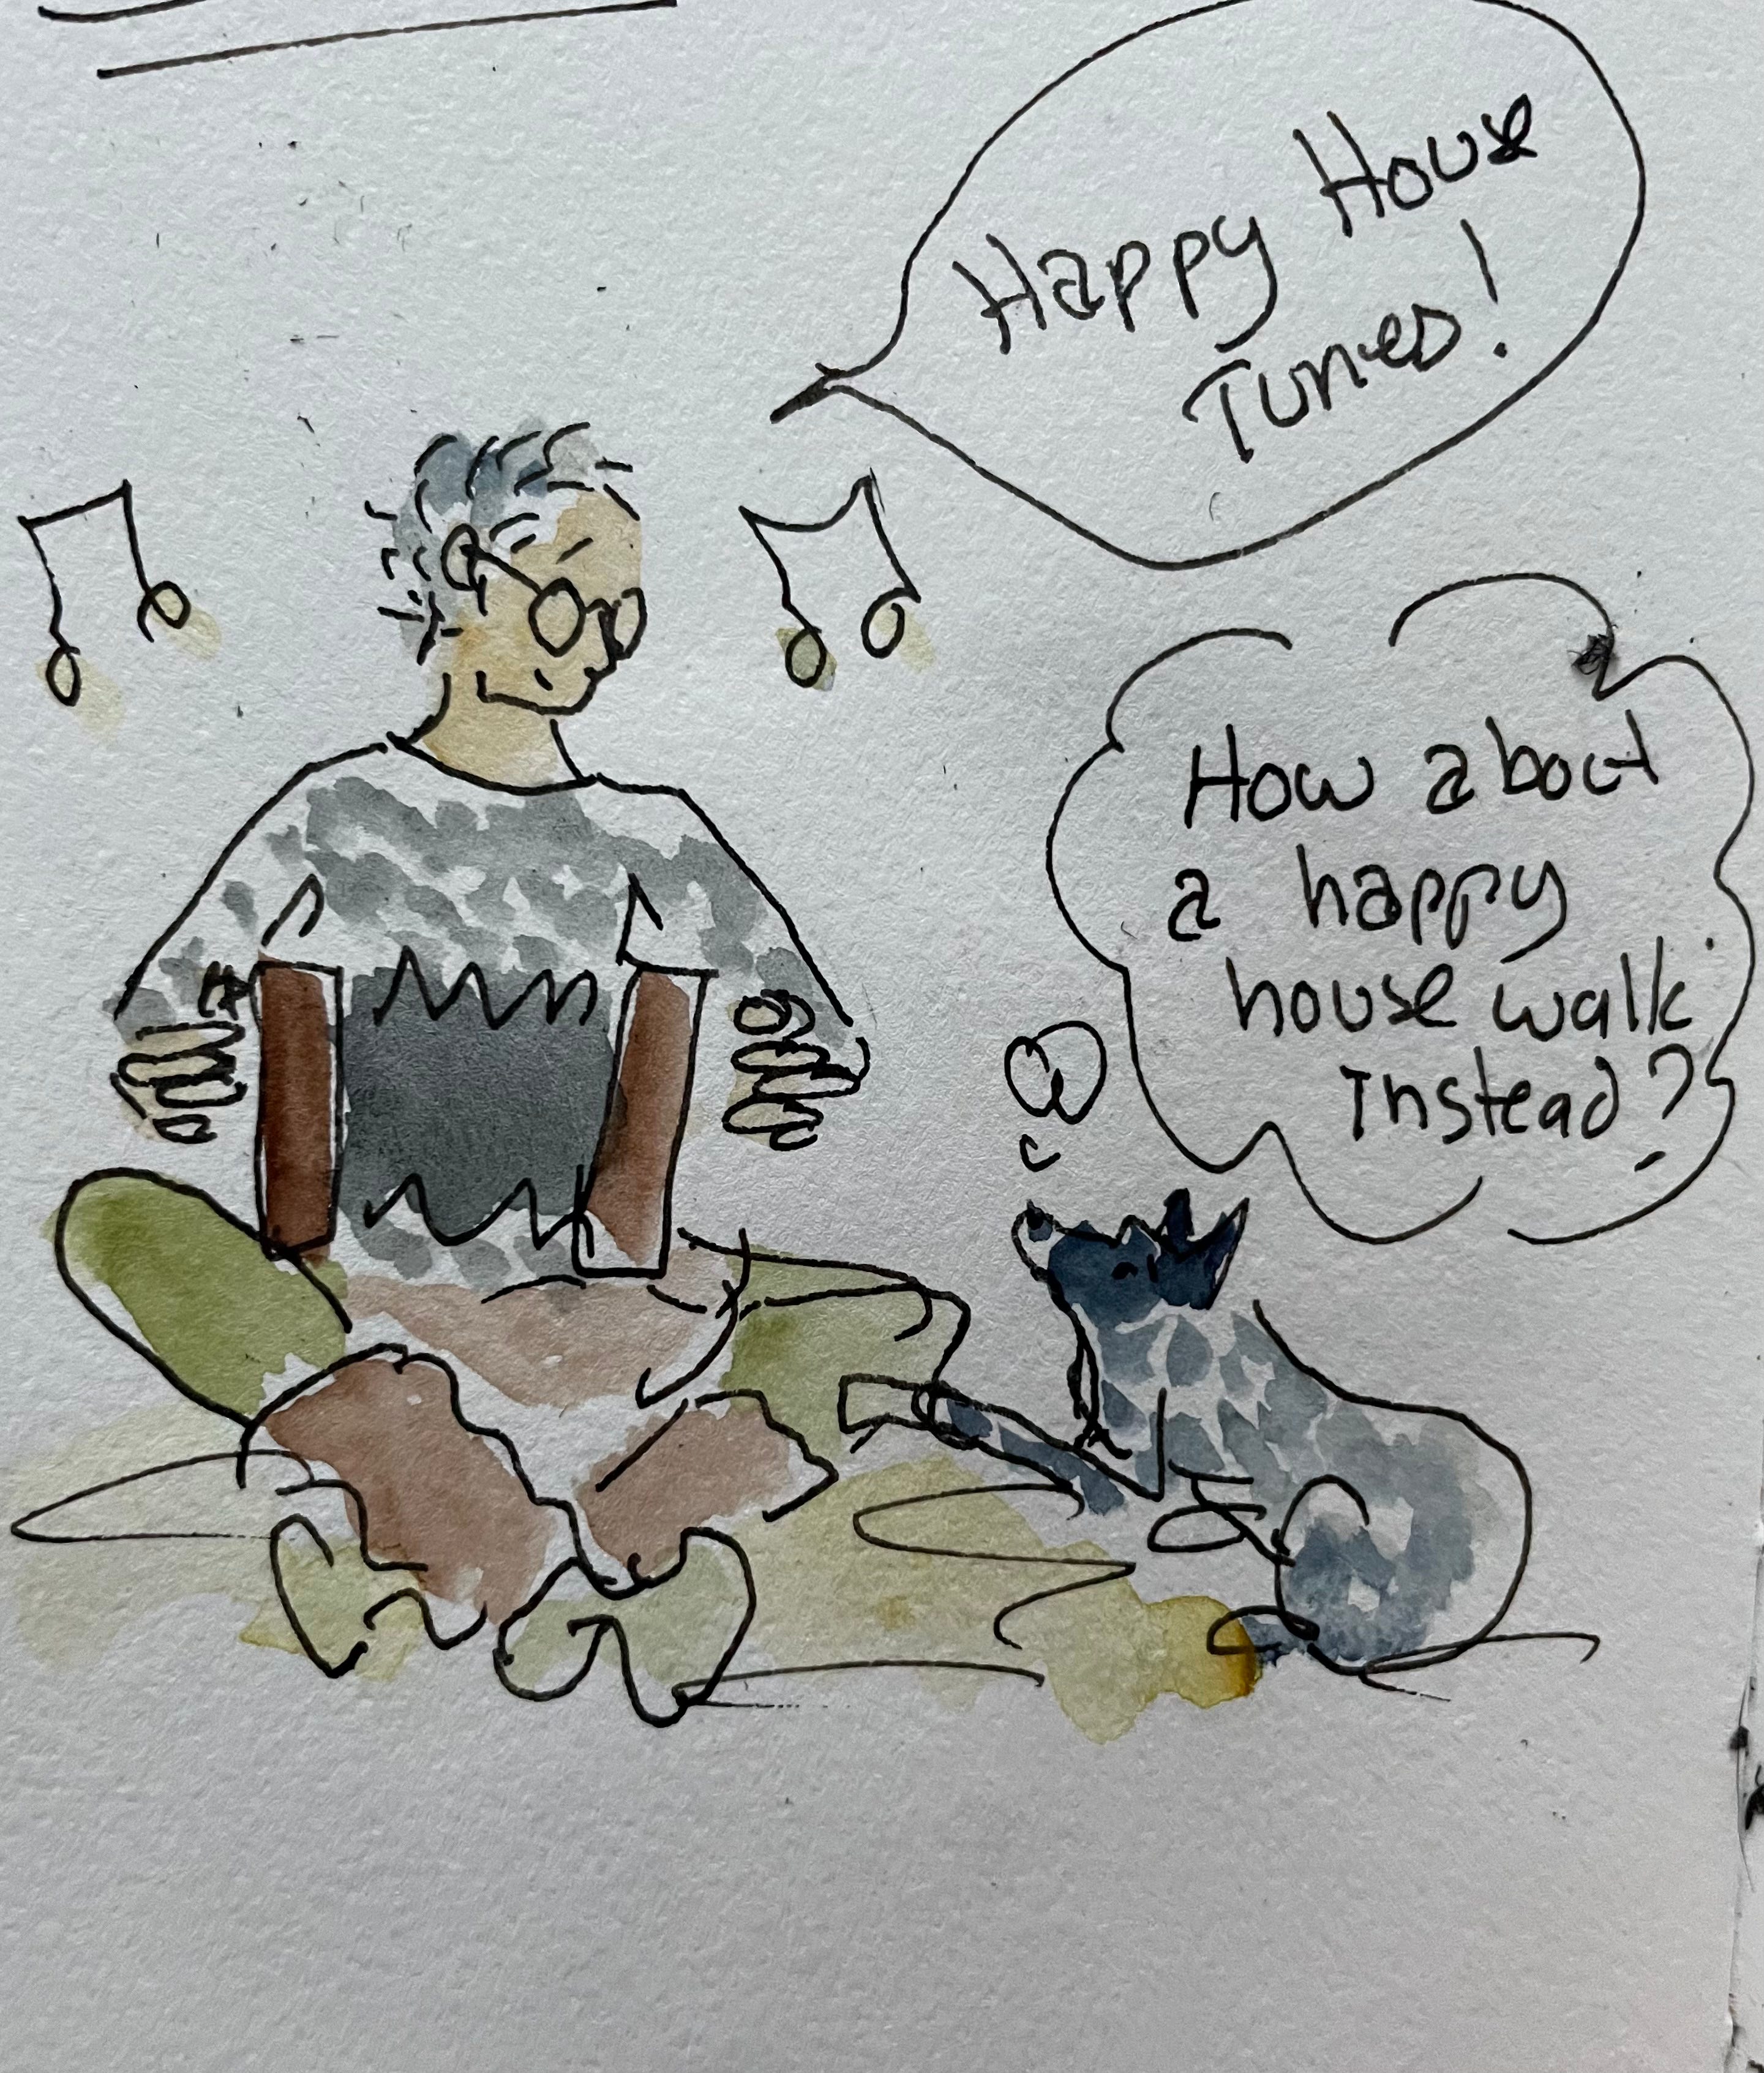 Happy House
Tunes!
How about
a happy
house walk
instead?